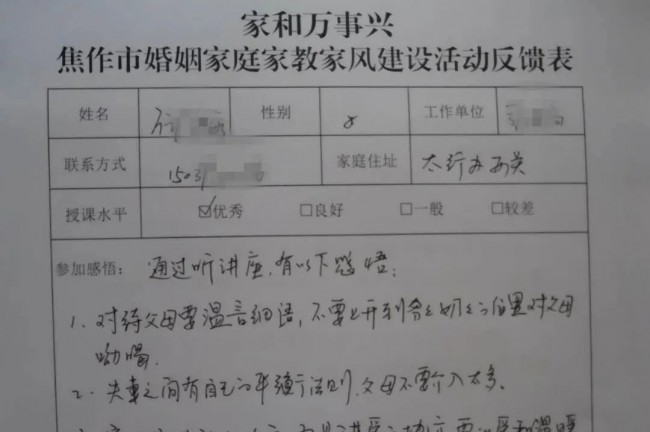 家和万事兴
焦作市婚姻家庭家教家风建设活动反馈表
姓名 性别 女 工作单位
联系方式 1503 家庭住址 太行办西关
授课水平 ☑优秀 □良好 □一般 □较差
参加感悟: 通过听讲座,有以下感悟:
1. 对待父母要温言细语,不要上升到爷爷奶奶的位置对父母
2. 夫妻之间有自己的平衡方法则,父母不要介入太多。